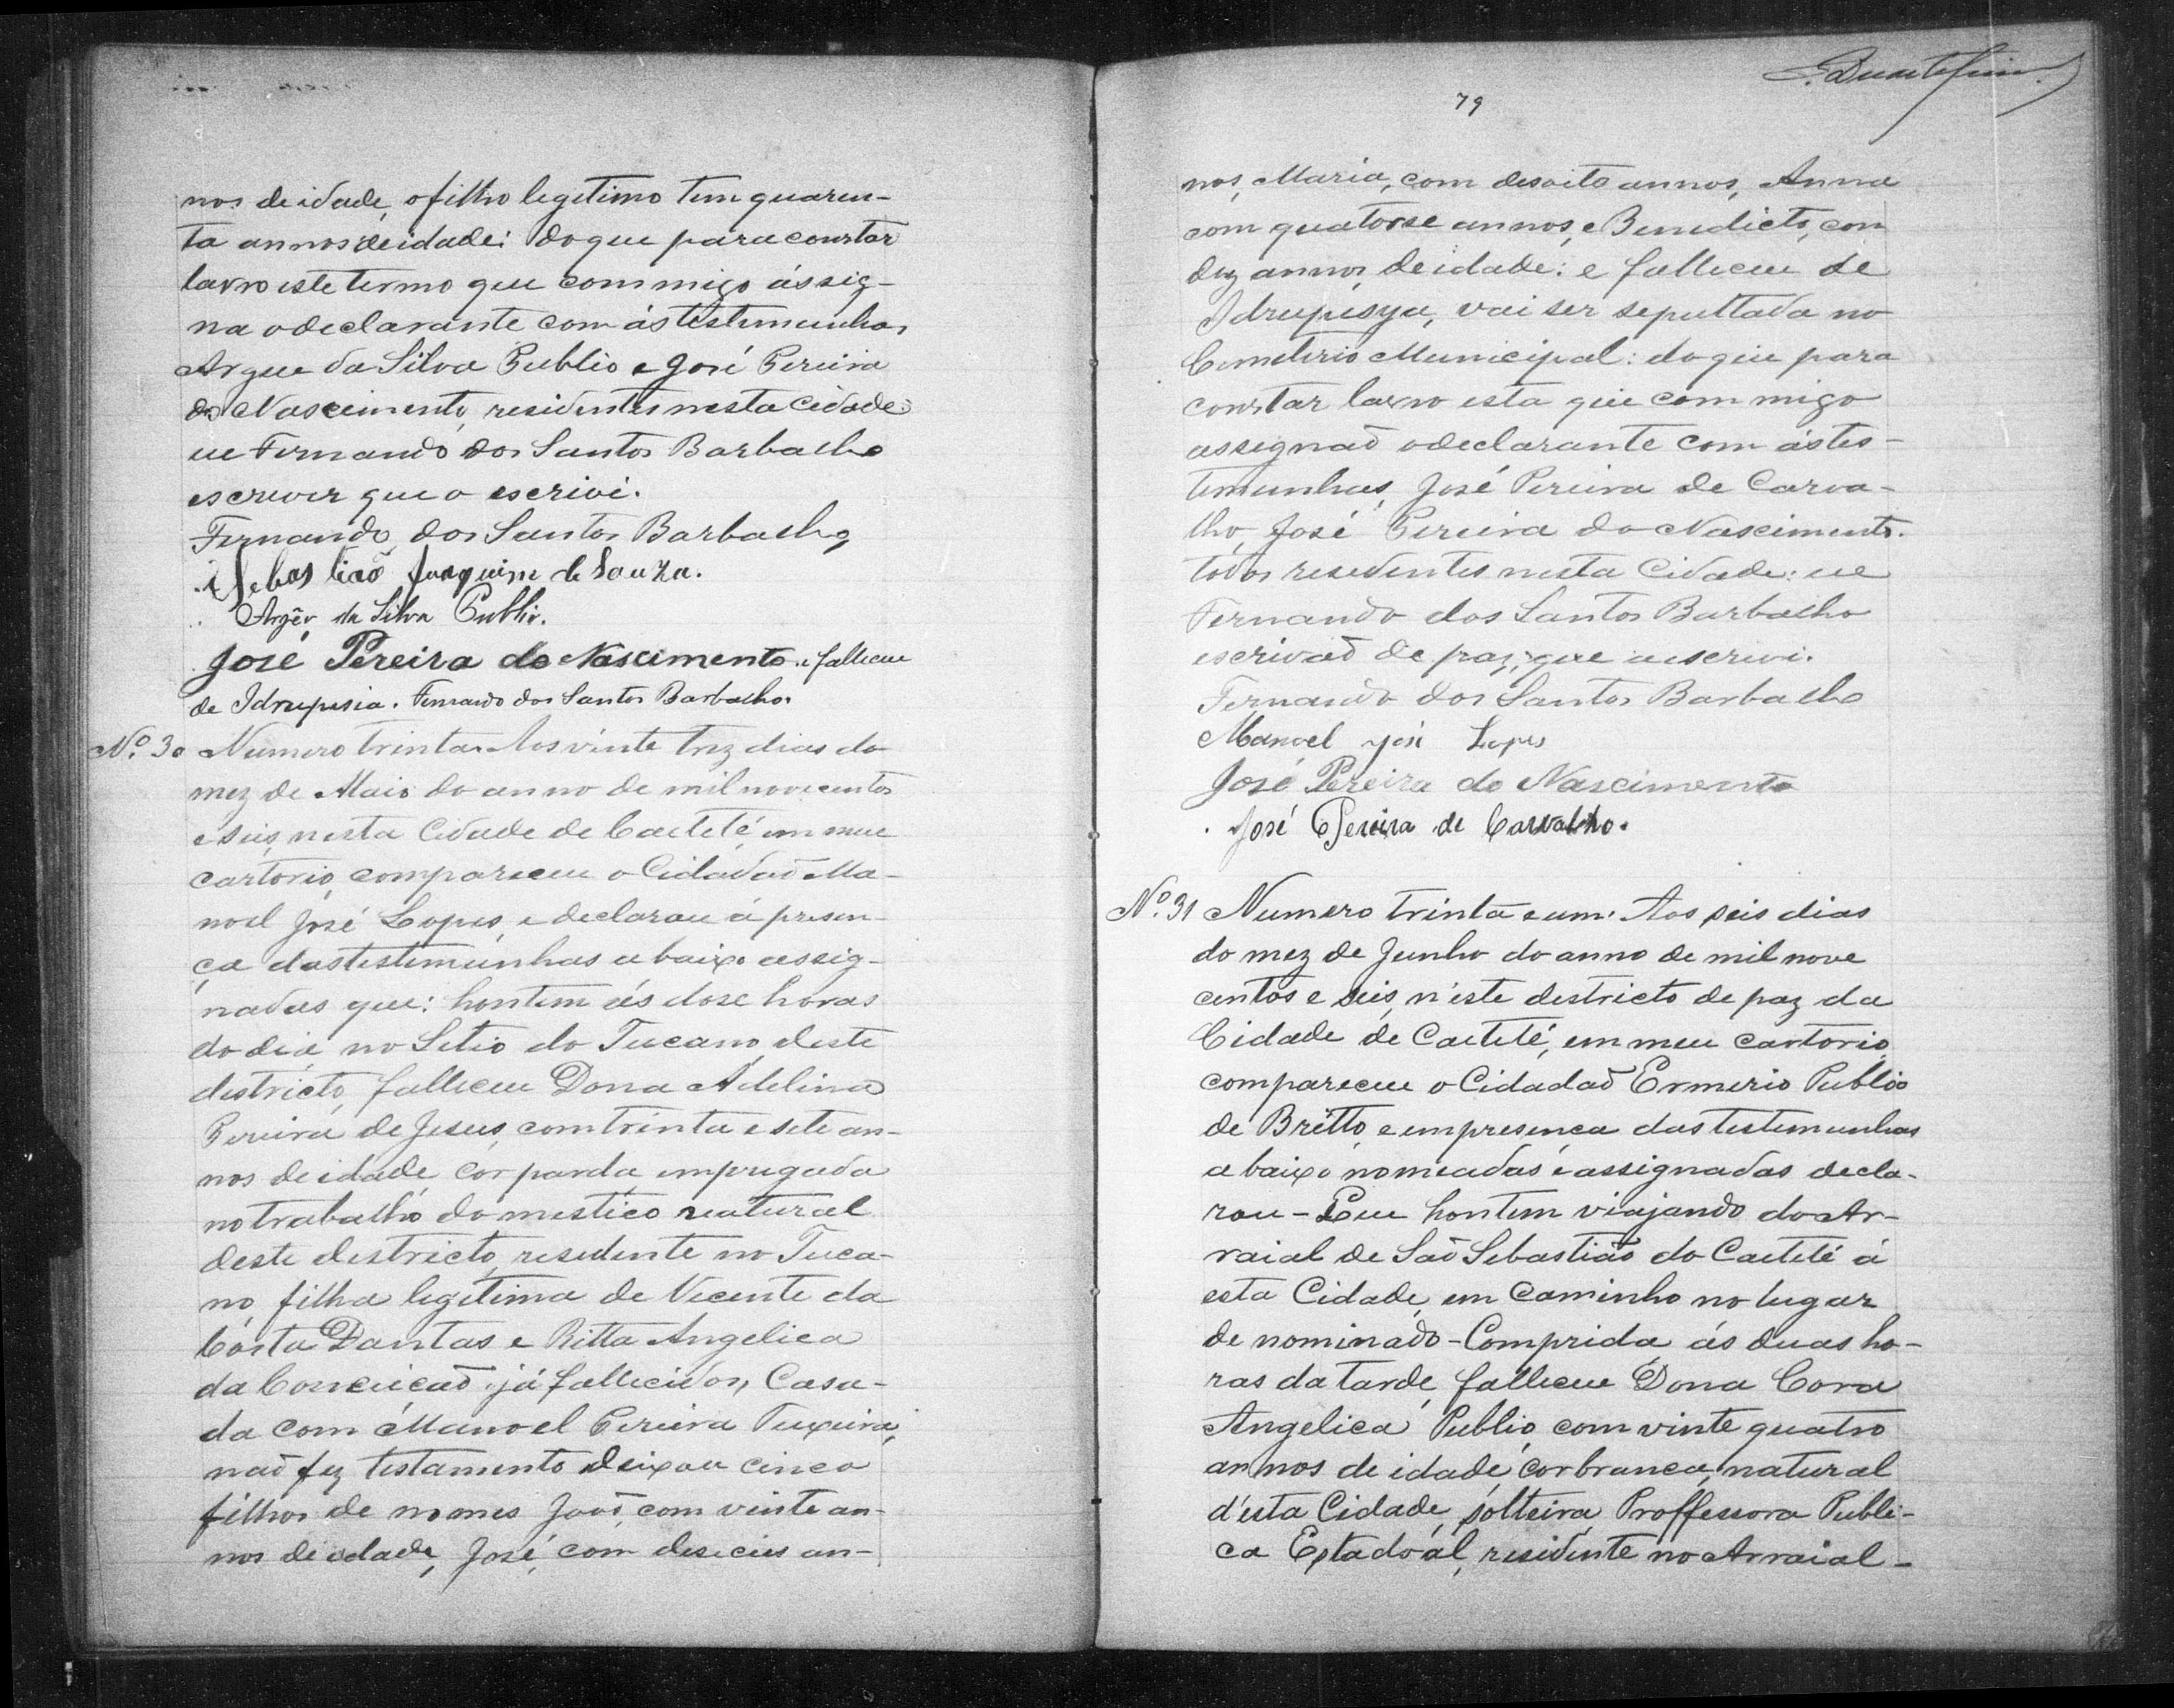 nos de idade, o filho legitimo tem quaren-
ta annos de idade: do que para constar
lavro este termo que commigo ássig-
na o declarante com ás testemunhas
Argeu da Silva Publio e José Pereira
do Nascimento, residentes nesta Cidade:
eu Fernando dos Santos Barbalho
escrever que o escrivi.
Fernando dos Santos Barbalho
Sebastiaõ Joaquim de Souza.
Argêo da Silva Publio.
José Pereira do Nascimento. e falleceu
de Idrupesia. Fernando dos Santos Barbalho
Nº 30 Numero trinta. Aos vinte trez dias do
mez de Maio do anno de mil novecentos
e seis, nesta Cidade de Caeteté, em meu
cartorio, compareceu o Cidadaõ Ma-
noel José Lopes, e declarou á presen-
ça das testemunhas abaixo assig-
nadas que: hontem ás dose horas
do dia, no Setio do Tucano, deste
destricto, falleceu Dona Adelina
Pereira de Jesus, com trinta e sete an-
nos de idade, cor parda, empregada
no trabalho domestico, natural
deste destricto, residente no Tuca-
no, filha legitima de Vicente da
Costa Dantas e Ritta Angelica
da Conceicaõ já fallecidos, Casa-
da com Manoel Pereira Teixeira,
naõ fez testamento, deixou cinco
filhos de nomes Joaõ, com vinte an-
nos de idade, José, com deseseis an-
79
nos, Maria, com desoito annos, Anna
com quatorse annos, e Benedicto, com
dez annos, de idade: e falleceu de
Idrupesya, vai ser sepultada no
Cemeterio Municipal: do que para
constar lavro esta que commigo
assignaõ o declarante com ás tes-
temunhas, José Pereira de Carva-
lho, José Pereira do Nascimento.
todos residentes nesta Cidade: eu
Fernando dos Santos Barbalho
escrivaõ de paz, que a escrivi.
Fernando dos Santos Barbalho
Manoel José Lopes
José Pereira do Nascimento
José Pereira de Carvalho.
Nº 31 Numero trinta e um. Aos seis dias
do mez de Junho do anno de mil nove
centos e seis, n'este destricto de paz da
Cidade de Caeteté, em meu cartorio
compareceu o Cidadaõ Ermerio Publio
de Britto, e em presenca das testemunhas
abaixo nomeadas e assignadas decla-
rou - Que hontem viajando do Ar-
raial de Saõ Sebastiaõ do Caeteté á
esta Cidade, em caminho no lugar
denominado - Comprida ás duas ho-
ras da tarde, falleceu Dona Cora
Angelica Publio, com vinte quatro
annos de idade, cor branca, natural
d'esta Cidade, solteira, Proffessora Publi-
ca Estadoal, residente no Arraial -